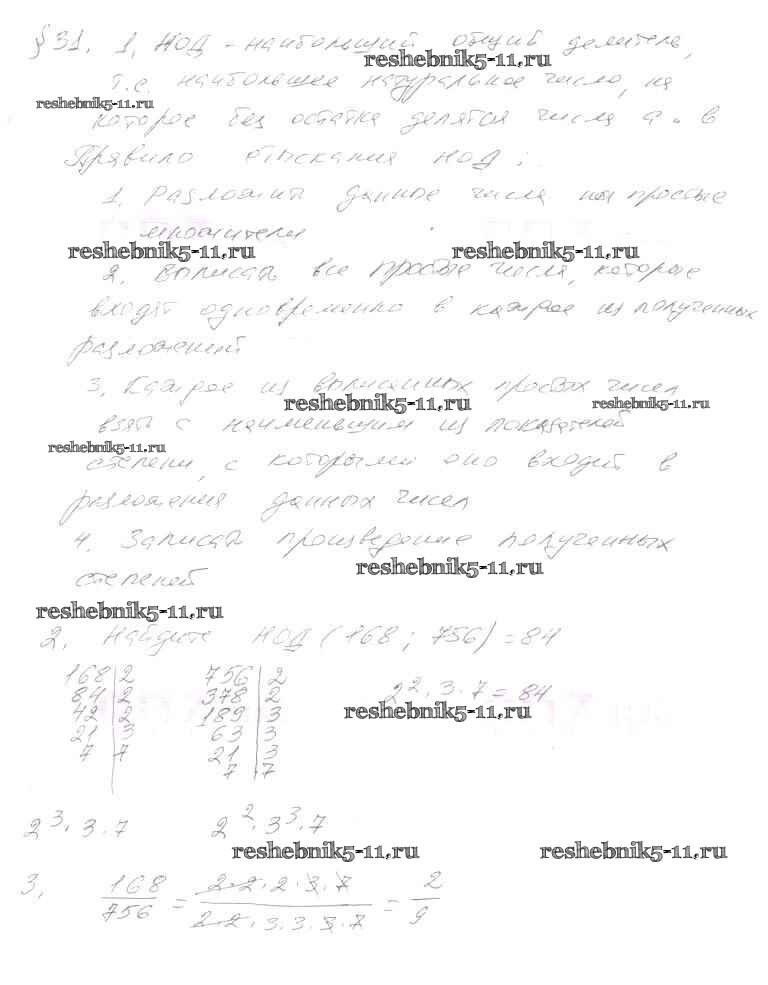 §31. 1. НОД - наибольший общий делитель,
reshebnik5-11.ru
т.е. наибольшее натуральное число, на
reshebnik5-11.ru
которое без остатка делятся числа a и b
Правило отыскания НОД:
1. Разложить данные числа на простые
множители
reshebnik5-11.ru reshebnik5-11.ru
2. Выписать все простые числа, которые
входят одновременно в каждое из полученных
разложений
3. Каждое из выписанных простых чисел
reshebnik5-11.ru reshebnik5-11.ru
взять с наименьшим из показателей
reshebnik5-11.ru
степени, с которыми оно входит в
разложения данных чисел
4. Записать произведение полученных
reshebnik5-11.ru
степеней
reshebnik5-11.ru
2. Найдите НОД (168; 756) = 84
168|2 756|2
84|2 378|2 2²·3·7 = 84
42|2 189|3
reshebnik5-11.ru
21|3 63|3
7|7 21|3
7|7
2³·3·7 2²·3³·7
reshebnik5-11.ru reshebnik5-11.ru
3. 168/756 = 2·2·2·3·7/2·2·3·3·3·7 = 2/9